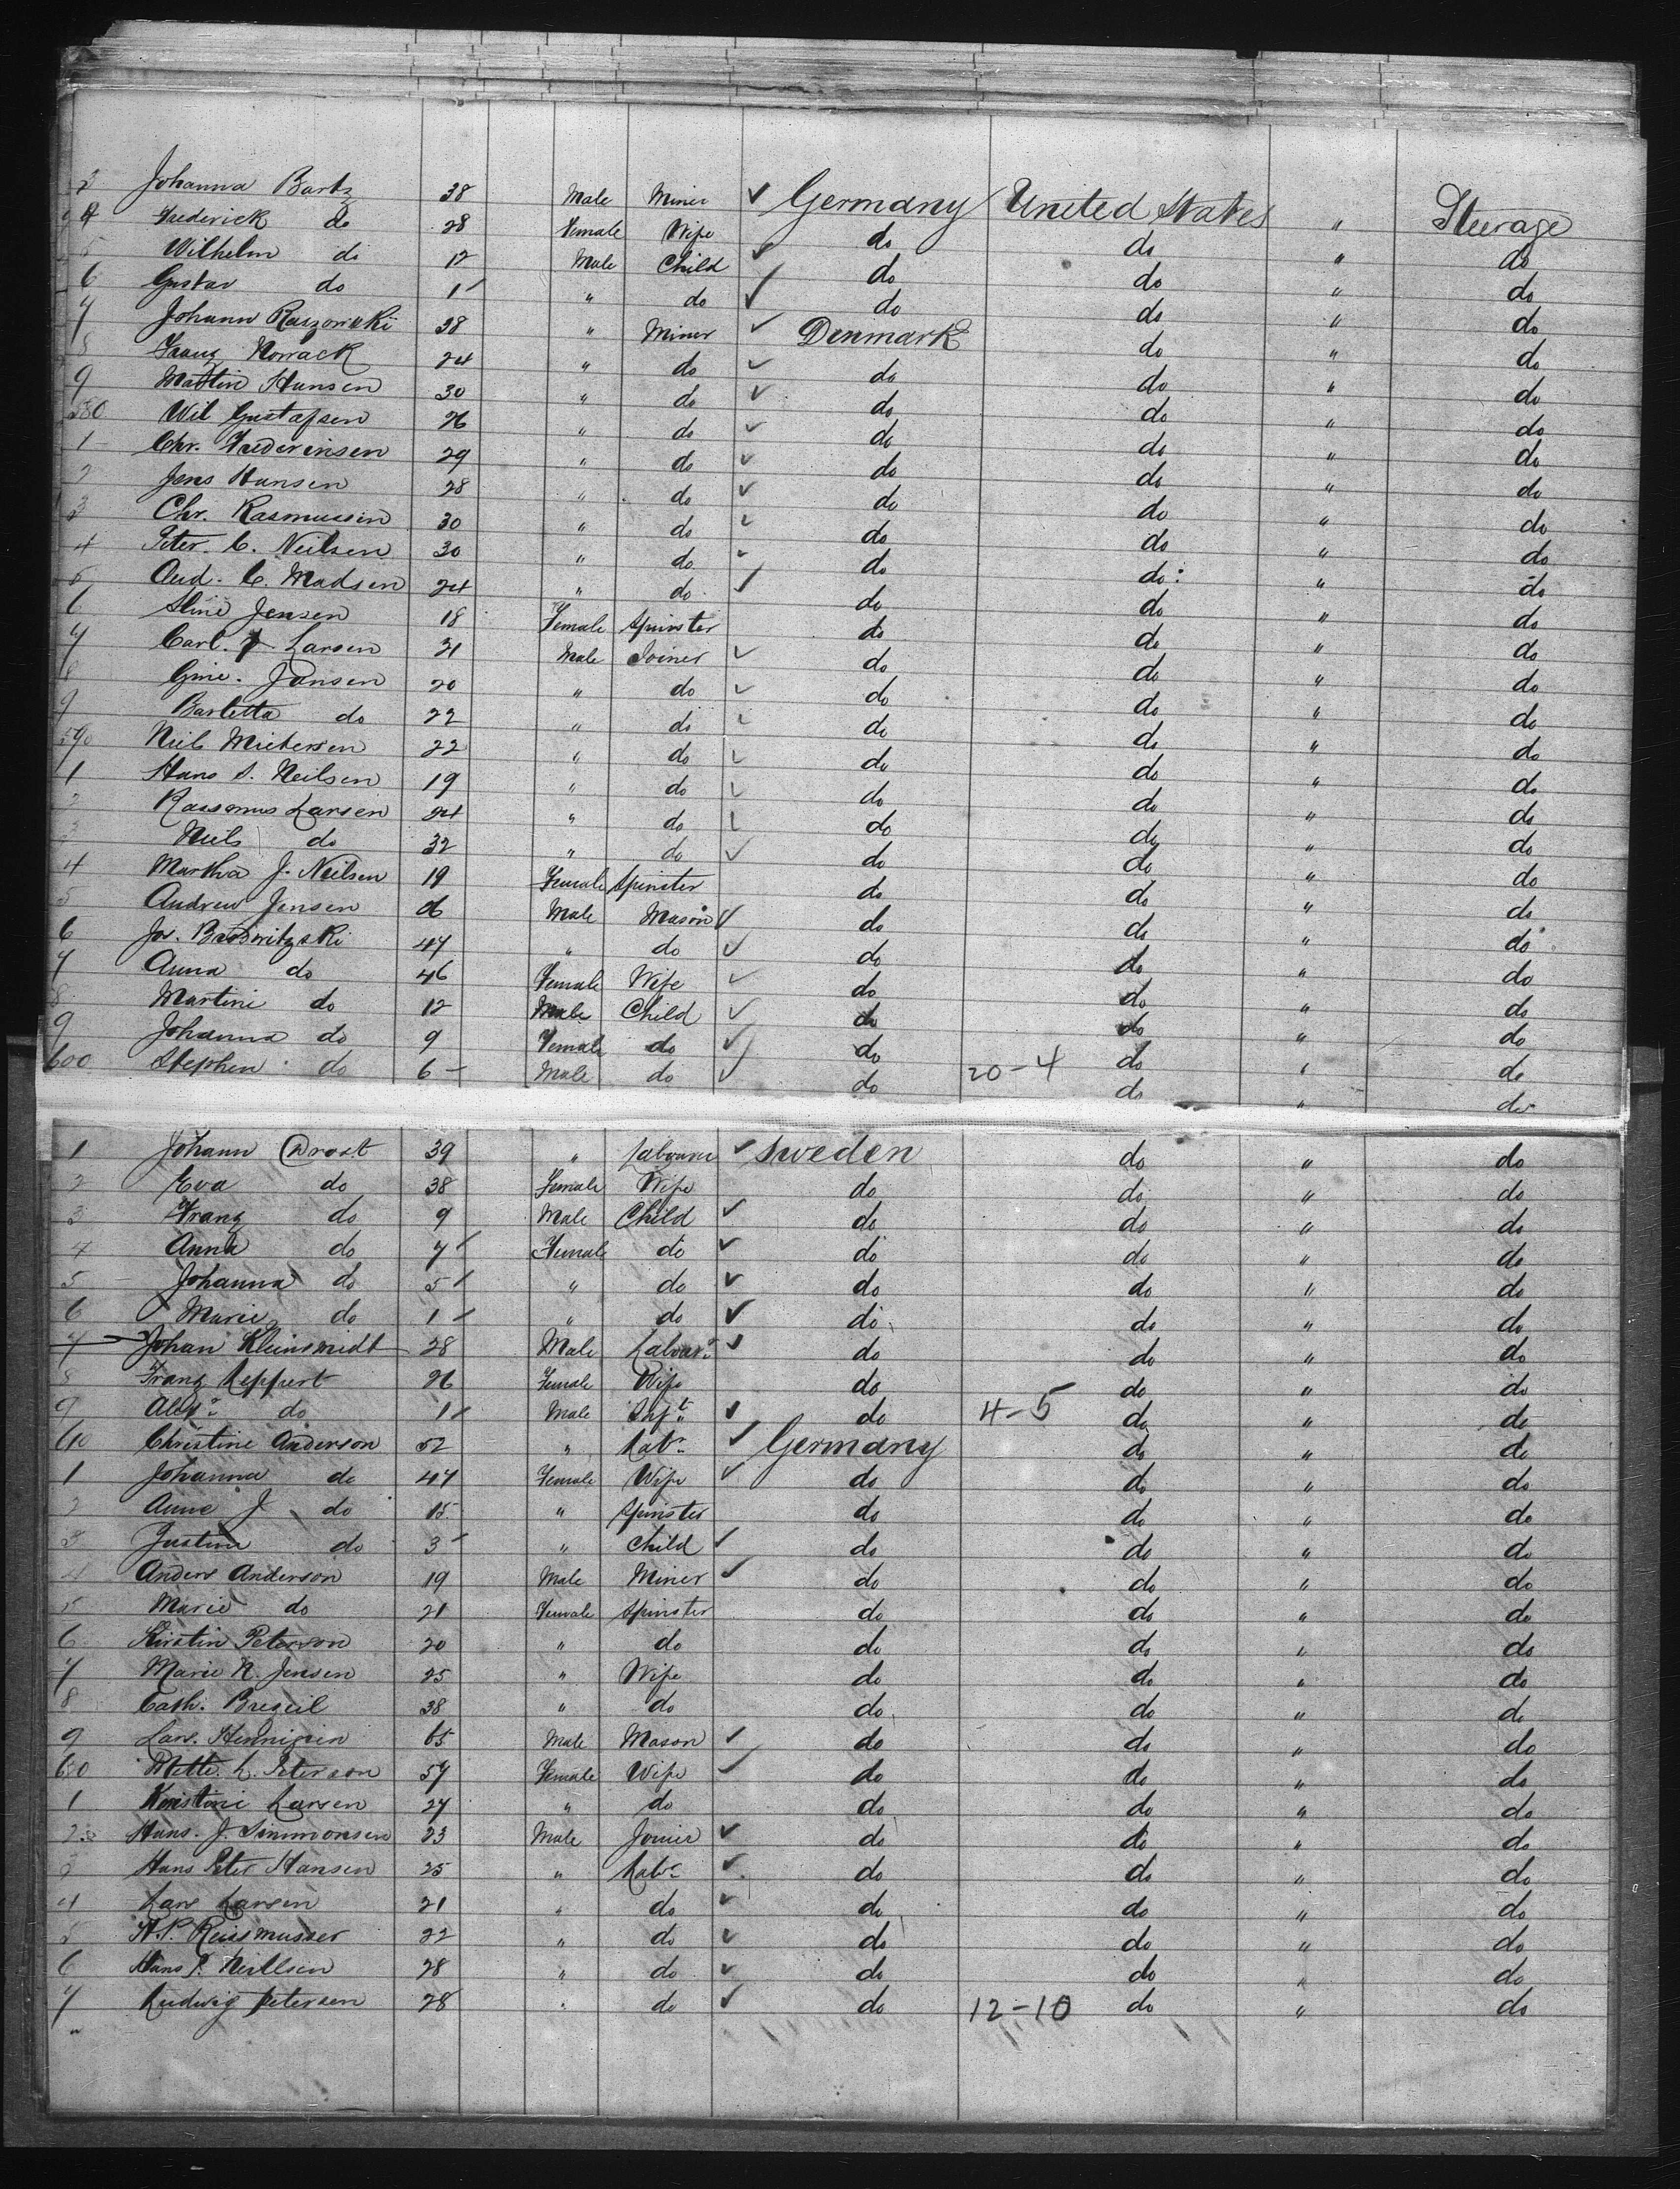 3 Johanna Bartz 38 Male Miner ✓ Germany United States " Steerage
4 Frederick do 28 Female Wife do do " do
5 Wilhelm do 12 Male Child ✓ do do " do
6 Gustav do 1 " do ✓ do do " do
7 Johann 38 " Miner ✓ Denmark do " do
8 Franz Novack 24 " do ✓ do do " do
9 Martin Hansen 30 " do ✓ do do " do
580 Wil Gustafsen 26 " do ✓ do do " do
1 Chr. Frederinsen 29 " do ✓ do do " do
2 Jens Hansen 28 " do ✓ do do " do
3 Chr. Rasmussin 30 " do ✓ do do " do
4 Peter. C. Neilsen 30 " do do do " do
5 And. C. Madsen 24 " do ✓ do do " do
6 Stine Jensen 18 Female Spinster do do " do
7 Carl. J Larsen 21 Male Joiner ✓ do do " do
8 Gine. Jansen 20 " do ✓ do do " do
9 Barletta do 22 " do ✓ do do " do
590 Niels 22 " do ✓ do do " do
1 Hans S. Neilsen 19 " do ✓ do do " do
2 Rassmus Larsen 24 " do ✓ do do " do
3 Niels do 32 " do ✓ do do " do
4 Martha J. Neilsen 19 Female Spinster do do " do
5 Andrew Jensen 26 Male Mason ✓ do do " do
6 Jos. 47 " do ✓ do do " do
7 Anna do 46 Female Wife ✓ do do " do
8 Martini do 12 Male Child ✓ do do " do
9 Johanna do 9 Female do ✓ do do " do
600 Stephen do 6 Male do ✓ do 20-4 do " do
1 Johann Drost 39 " Labourer ✓ Sweden do " do
2 Eva do 38 Female Wife do do " do
3 Franz do 9 Male Child ✓ do do " do
4 Anna do 7 Female do ✓ do do " do
5 Johanna do 5 " do ✓ do do " do
6 Marie do 1 " do ✓ do do " do
7 Johan Kleinsmidt 28 Male Labour ✓ do do " do
8 Franz Leppert 26 Female Wife do do " do
9 do 1 Male Inft ✓ do 4-5 do " do
610 Christine Anderson 52 " Labr ✓ Germany do " do
1 Johanna do 47 Female Wife ✓ do do " do
2 Anne J do 15 " Spinster do do " do
3 Justine do 3 " Child ✓ do do " do
4 Anders Anderson 19 Male Miner ✓ do do " do
5 Marie do 21 Female Spinster do do " do
6 Kirstin Peterson 20 " do do do " do
7 Marie N. Jensen 25 " Wife do do " do
8 Cath. 38 " do do do " do
9 Lars. 65 Male Mason ✓ do do " do
620 Mette. L. Peterson 57 Female Wife ✓ do do " do
1 Larsen 27 " do do do " do
2 Hans. J. Simmonsen 23 Male Joiner ✓ do do " do
3 Hans Peter Hansen 25 " Labr ✓ do do " do
4 Lars Larsen 21 " do ✓ do do " do
5 H.P. Rassmusser 22 " do ✓ do do " do
6 Hans P. Neillsen 28 " do ✓ do do " do
7 Ludwig Petersen 28 " do ✓ do 12-10 do " do